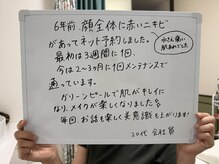 6年前、顔全体に赤いニキビ
があってネット予約しました。
最初は3週間に1回、
今は2〜3ヶ月に1回メンテナンスで
通っています。
グリーンピールで肌がキレイに
なり、メイクが楽しくなりました
毎回、お話も楽しく美意識も上がります!
20代 会社員
肌あれでした